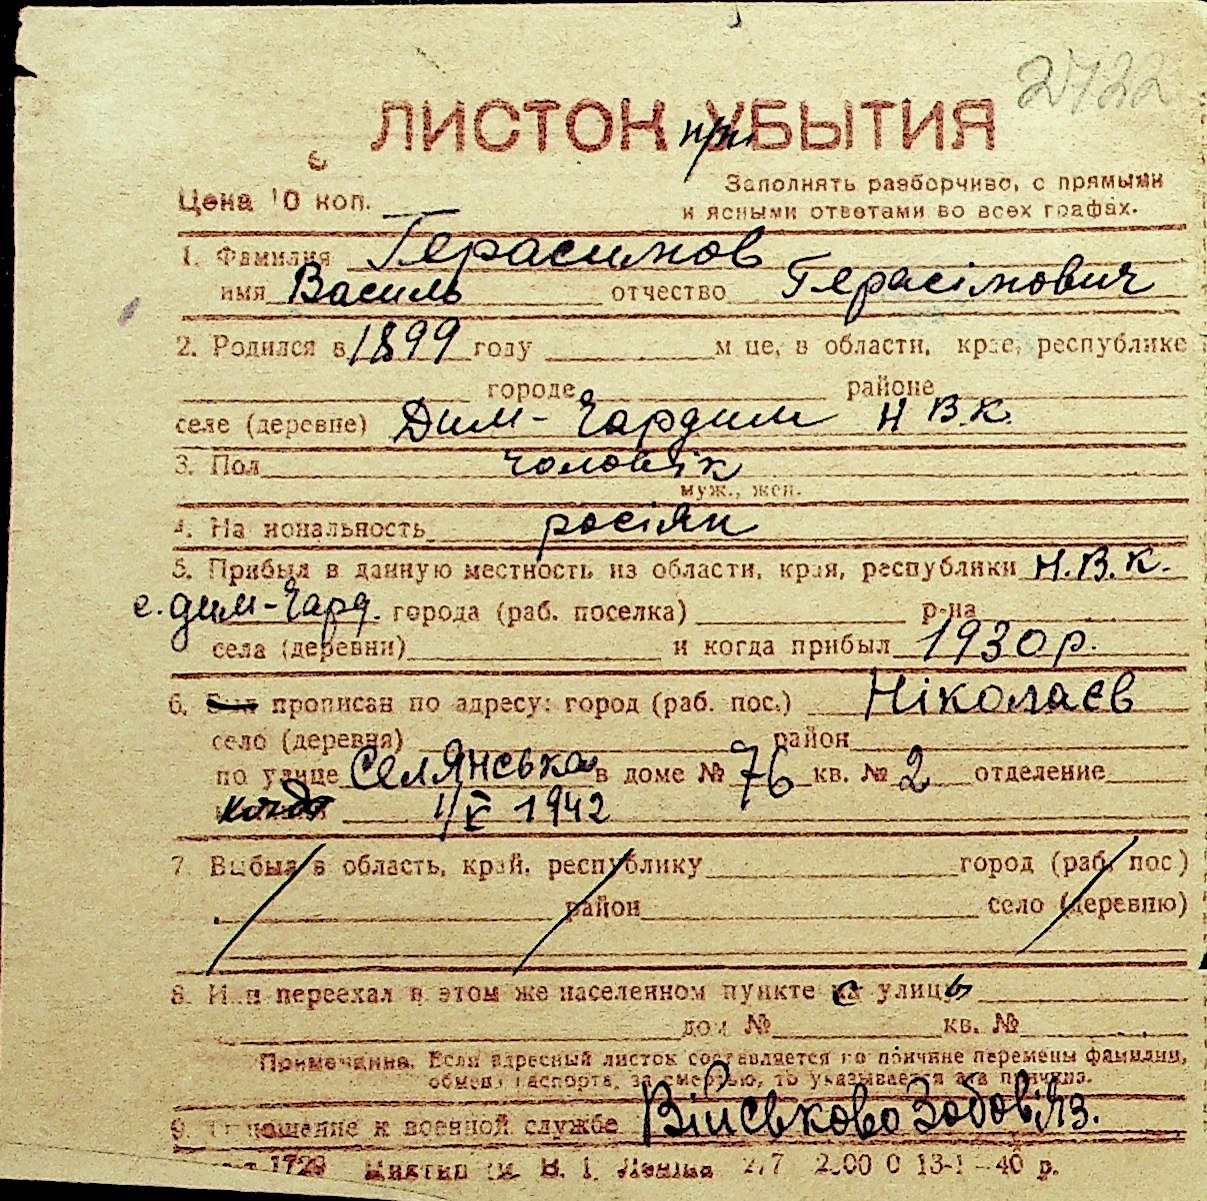 2722
ЛИСТОК при УБЫТИЯ
Цена 10 коп.
Заполнять разборчиво, с прямыми
и ясными ответами во всех графах.
1. Фамилия Герасимов
имя Василь отчество Герасімович
2. Родился в 1899 году м-це, в области, крае, республике
городе районе
селе (деревне) Дим-Чардим Н.В.К.
3. Пол чоловік
муж., жен.
4. Национальность росіян
5. Прибыл в данную местность из области, края, республики Н.В.К.
с. Дим-Чард. города (раб. поселка) р-на
села (деревни) и когда прибыл 1930 р.
6. Был прописан по адресу: город (раб. пос.) Ніколаєв
село (деревня) район
по улице Селянська в доме № 76 кв. № 2 отделение
когда 1/V 1942
7. Выбыл в область, край, республику город (раб. пос)
район село (деревню)
8. Или переехал в этом же населенном пункте с улицы
дом № кв. №
Примечание. Если адресный листок составляется по причине перемены фамилии,
обмена паспорта, за смертью, то указывается эта причина.
9. Отношение к военной службе Військовозобовʼяз.
1729 им. В. І. Леніна 27 13-1-40 р.